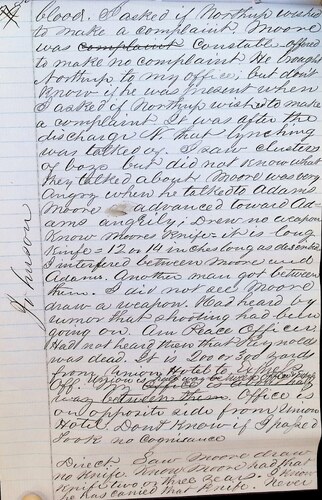 blood. I asked if Northrup wished
to make a complaint. Moore
was complaint Constable offered
to make no complaint He brought
Northrup to my office; but don't
know if he was present when
I asked if Northrup wished to make
a complaint It was after the
discharge N. that lynching
was talked of. I saw clusters
of boys but did not know what
they talked about Moore was very
angry when he talked to Adams
Moore advanced toward Ad-
ams angrily; Drew no weapon
Know Moores Knife - it is long
Knife - 12 or 14 inches long as described
I interfered between Moore and
Adams. Another man got between
them. I did not see Moore
draw a weapon. Had heard by
rumor that shooting had been
going on. Am Peace Officer
Had not heard then that Reynolds
was dead. It is 200 or 300 yards
from Union Hotel to
Off. Union is
way between them. Office is
on opposite side from Union
Hotel Dont Know if I passed
Took no Cognisance
Direct. Saw Moore draw
no Knife. Know Moore had that
Knife two or three years. I know
he has carried that Knife. Never
Johnson